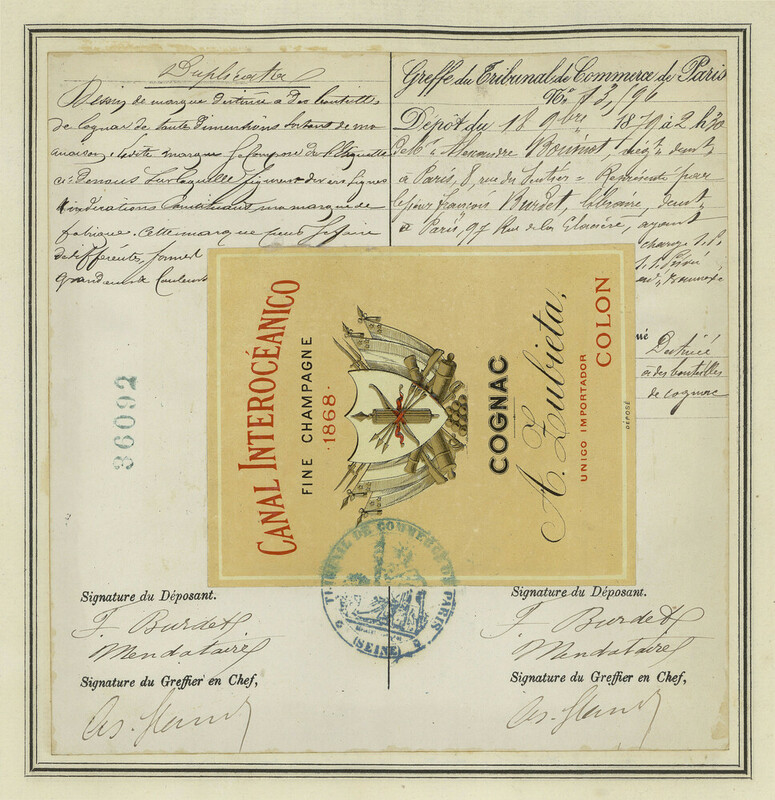 Duplicata
Dessin de marque destinée à des bouteilles
de Cognac de toute dimentions sortant de ma
maison. Ladite marque se compose de l'étiquette
ci-dessous sur laquelle figurent divers signes
& indications constituant ma marque de
fabrique. Cette marque peut se faire
de différentes formes
grandeurs & couleurs
36092
Greffe du Tribunal de Commerce de Paris
No. 13,196
Dépôt du 18 9bre 1879 à 2 h 30
Mr. Alexandre négt. demt.
à Paris, 8, rue du Sentier = Représenté par
le sieur François Burdet libraire, demt.
à Paris, 97 Rue de la Glacière, ayant
charge
Destiné
à des bouteilles
de cognac
CANAL INTEROCÉANICO
FINE CHAMPAGNE
·1868·
COGNAC
A. Zubieta,
UNICO IMPORTADOR
COLON
DÉPOSÉ
TRIBUNAL DE COMMERCE DE PARIS
(SEINE)
Signature du Déposant.
F. Burdet
Mendataire
Signature du Greffier en Chef,
Signature du Déposant.
F. Burdet
Mendataire
Signature du Greffier en Chef,